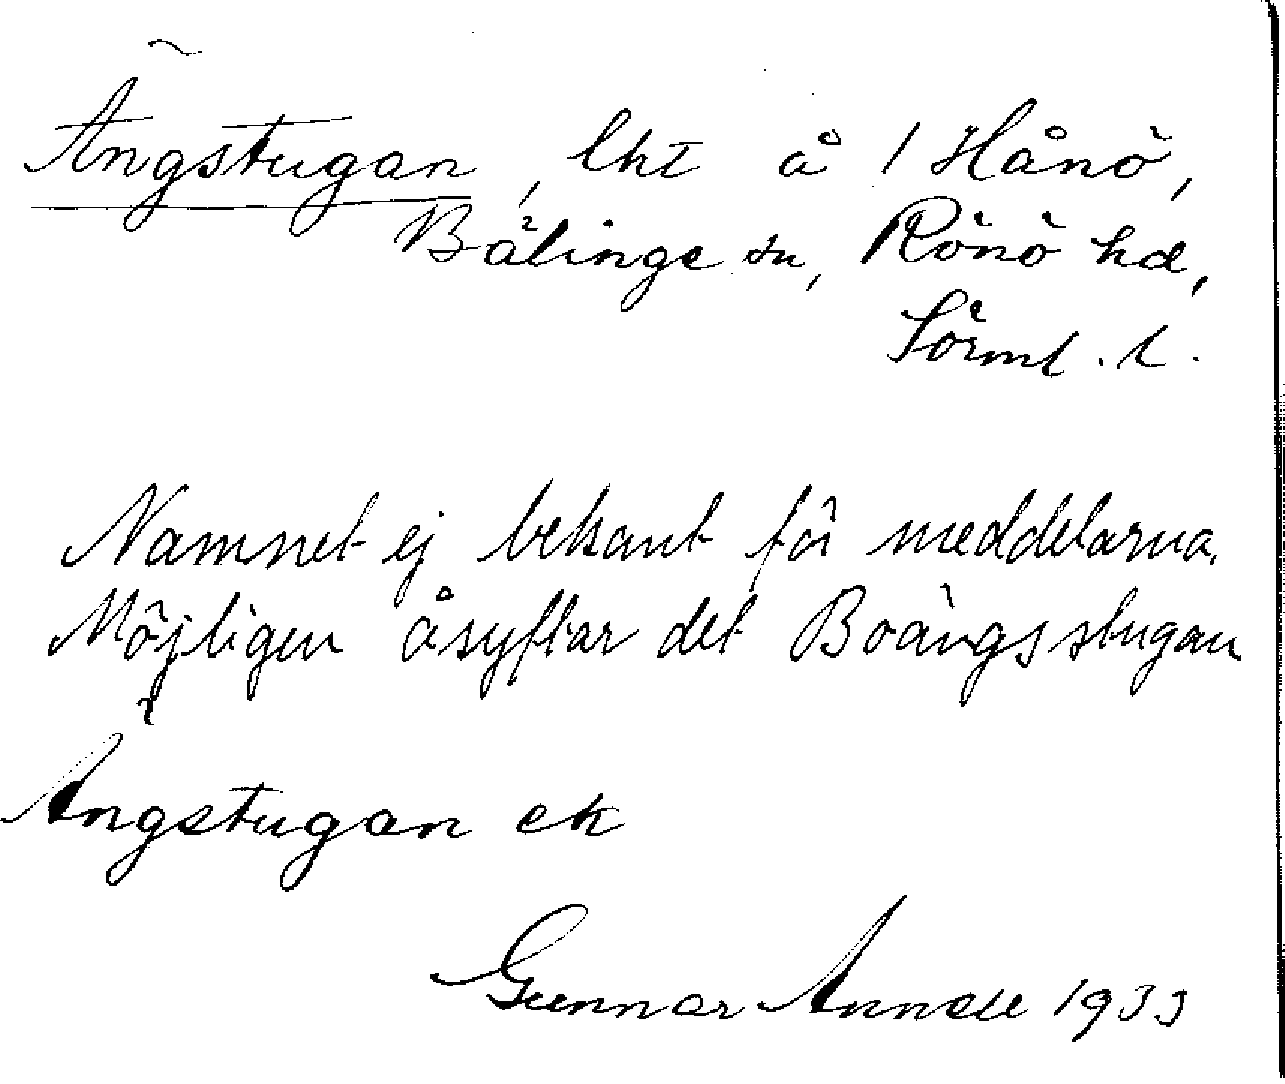 Ängstugan, lht å 1 Hånö,
Bälinge sn, Rönö hd,
Sörml. l.
Namnet ej bekant för meddelarna.
Möjligen åsyftar det Boängsstugan
Ängstugan ek
Gunnar Annell 1933